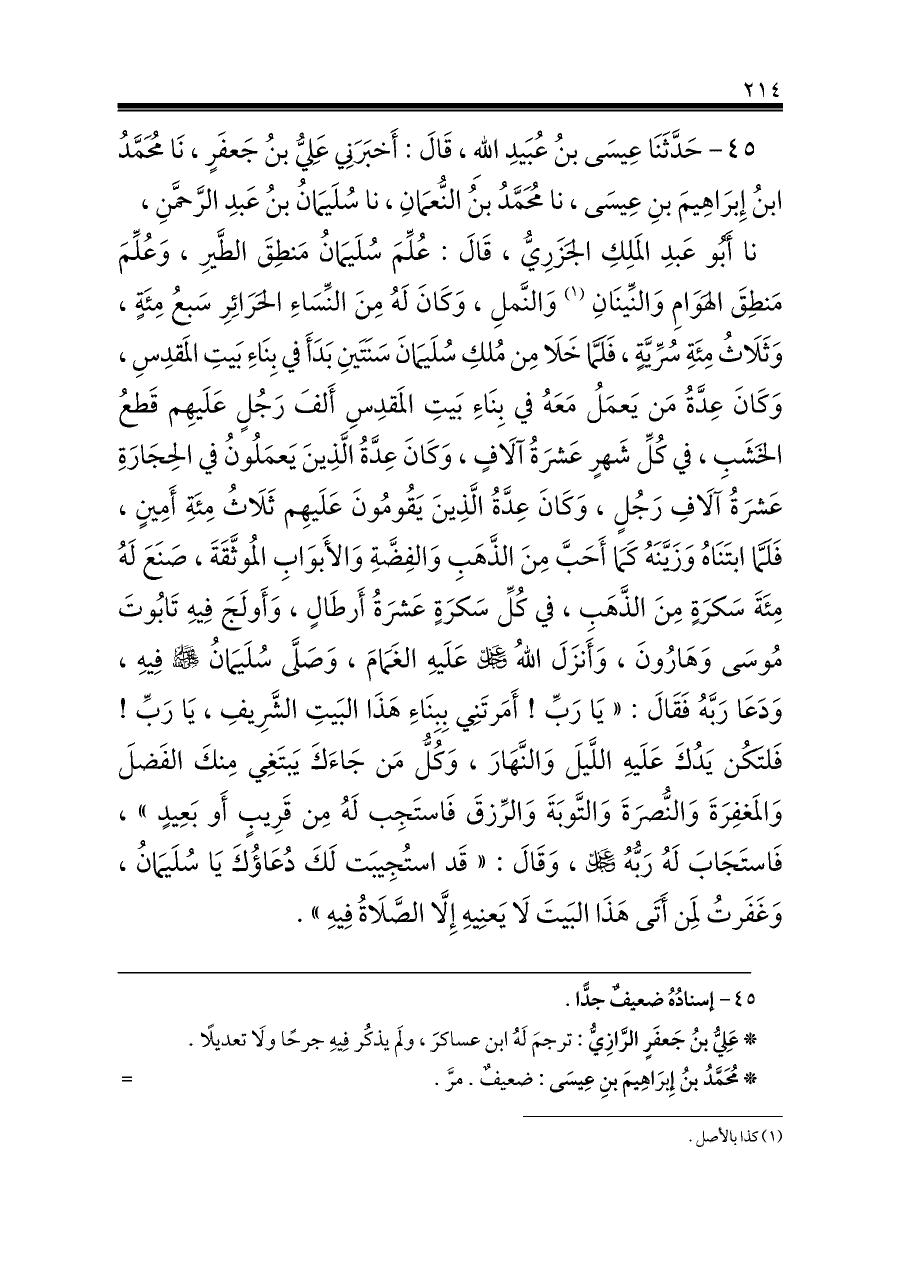 ٢١٤
٤٥- حَدَّثَنَا عِيسَى بنُ عُبَيدِ الله ، قَالَ : أَخبَرَنِي عَلِيُّ بنُ جَعفَرٍ ، نَا مُحَمَّدُ
ابنُ إِبرَاهِيمَ بنِ عِيسَى ، نا مُحَمَّدُ بنُ النُّعمَانِ ، نا سُلَيمَانُ بنُ عَبدِ الرَّحمَّنِ ،
نا أَبُو عَبدِ المَلِكِ الجَزَرِيُّ ، قَالَ : عُلِّمَ سُلَيمَانُ مَنطِقَ الطَّيرِ ، وَعُلِّمَ
مَنطِقَ الهَوَامِ وَالنِّينَانِ (١) وَالنَّملِ ، وَكَانَ لَهُ مِنَ النِّسَاءِ الحَرَائِرِ سَبعُ مِئَةٍ ،
وَثَلَاثُ مِئَةِ سُرِّيَّةٍ ، فَلَمَّا خَلَا مِن مُلكِ سُلَيمَانَ سَنَتَينِ بَدَأَ فِي بِنَاءِ بَيتِ المَقدِسِ ،
وَكَانَ عِدَّةُ مَن يَعمَلُ مَعَهُ فِي بِنَاءِ بَيتِ المَقدِسِ أَلفَ رَجُلٍ عَلَيهِم قَطعُ
الخَشَبِ ، فِي كُلِّ شَهرٍ عَشرَةُ آلَافٍ ، وَكَانَ عِدَّةُ الَّذِينَ يَعمَلُونُ فِي الحِجَارَةِ
عَشرَةُ آلَافِ رَجُلٍ ، وَكَانَ عِدَّةُ الَّذِينَ يَقُومُونَ عَلَيهِم ثَلَاثُ مِئَةِ أَمِينٍ ،
فَلَمَّا ابتَنَاهُ وَزَيَّنَهُ كَمَا أَحَبَّ مِنَ الذَّهَبِ وَالفِضَّةِ وَالأَبوَابِ المُوثَّقَةَ ، صَنَعَ لَهُ
مِئَةَ سَكرَةٍ مِنَ الذَّهَبِ ، فِي كُلِّ سَكرَةٍ عَشرَةُ أَرطَالٍ ، وَأَولَجَ فِيهِ تَابُوتَ
مُوسَى وَهَارُونَ ، وَأَنزَلَ اللهُ ﷻ عَلَيهِ الغَمَامَ ، وَصَلَّى سُلَيمَانُ ﷺ فِيهِ ،
وَدَعَا رَبَّهُ فَقَالَ : « يَا رَبِّ ! أَمَرتَنِي بِبِنَاءِ هَذَا البَيتِ الشَّرِيفِ ، يَا رَبِّ !
فَلتَكُن يَدُكَ عَلَيهِ اللَّيلَ وَالنَّهَارَ ، وَكُلُّ مَن جَاءَكَ يَبتَغِي مِنكَ الفَضلَ
وَالمَغفِرَةَ وَالنُّصرَةَ وَالتَّوبَةَ وَالرِّزقَ فَاستَجِب لَهُ مِن قَرِيبٍ أَو بَعِيدٍ » ،
فَاستَجَابَ لَهُ رَبُّهُ ﷻ ، وَقَالَ : « قَد استُجِيبَت لَكَ دُعَاؤُكَ يَا سُلَيمَانُ ،
وَغَفَرتُ لِمَن أَتَى هَذَا البَيتَ لَا يَعنِيهِ إِلَّا الصَّلَاةُ فِيهِ » .
٤٥- إسنادُهُ ضعيفٌ جدًّا .
* عَلِيُّ بنُ جَعفَرٍ الرَّازِيُّ : ترجمَ لَهُ ابن عساكرَ ، ولَم يذكُر فِيهِ جرحًا ولَا تعديلًا .
* مُحَمَّدُ بنُ إِبرَاهِيمَ بنِ عِيسَى : ضعيفٌ . مرَّ . =
(١) كذا بالأصل .